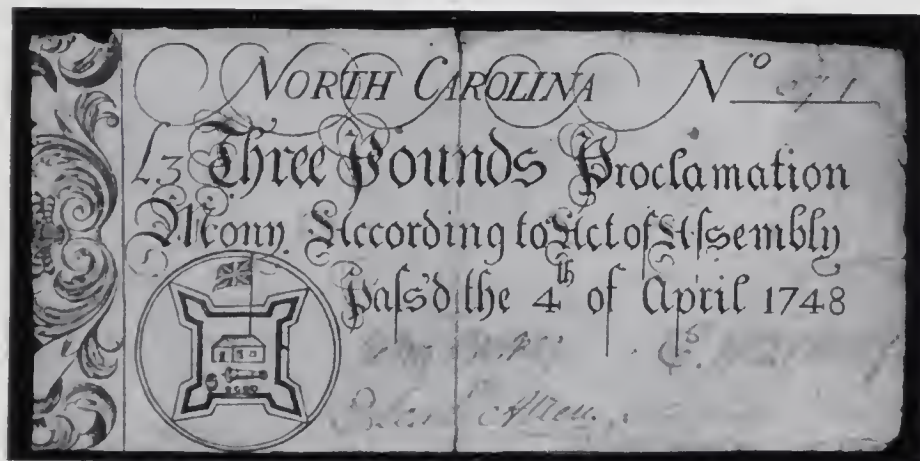 NORTH CAROLINA No
£3 Three Pounds Proclamation
Mony. According to Act of Assembly
Pass'd the 4th of April 1748